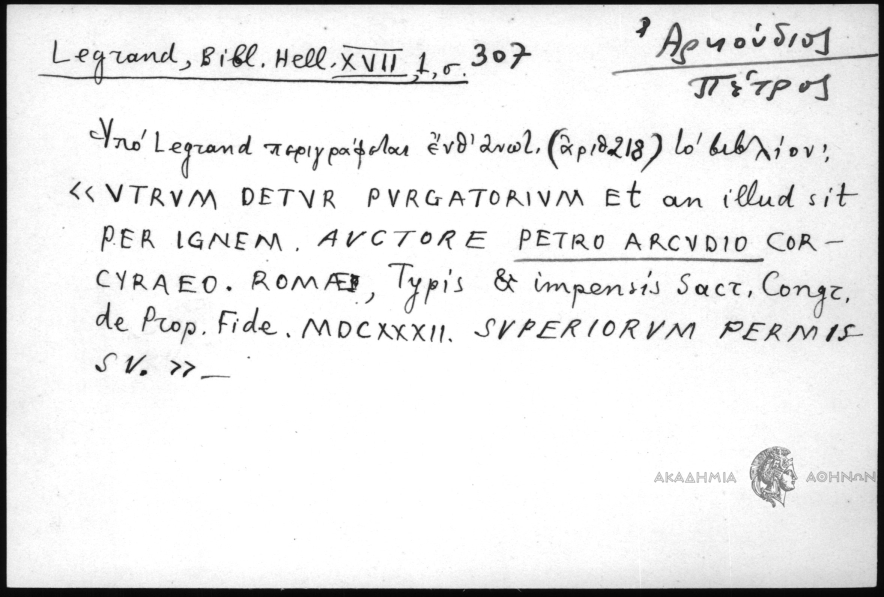 Legrand, Bibl. Hell. XVII, 1, σ. 307
Ἀρκούδιος
Πέτρος
Ὑπό Legrand περιγράφεται ἔνθ' ἀνωτ. (ἀριθ 218) τό βιβλίον:
«VTRVM DETVR PVRGATORIVM Et an illud sit
PER IGNEM. AVCTORE PETRO ARCVDIO COR–
CYRAEO. ROMÆ, Typis & impensis Sacr. Congr.
de Prop. Fide. MDCXXXII. SVPERIORVM PERMIS
SV.»—
ΑΚΑΔΗΜΙΑ ΑΘΗΝΩΝ